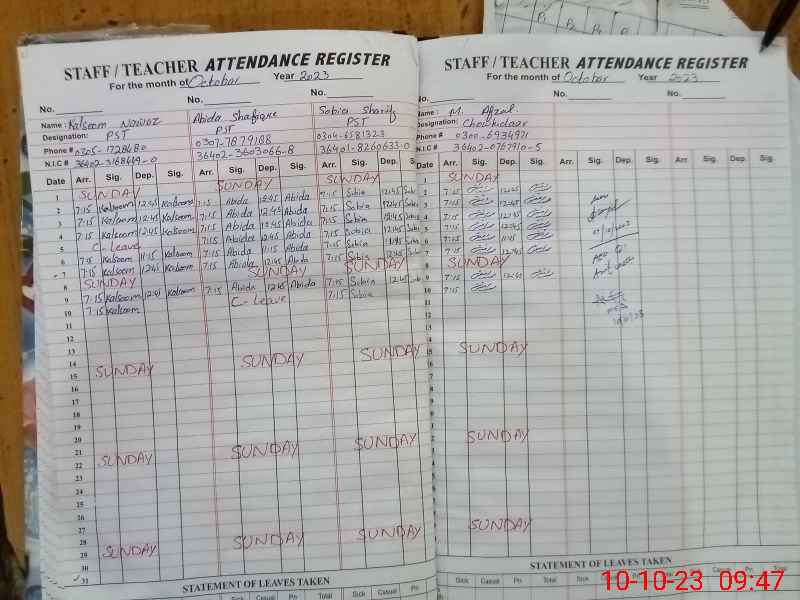 STAFF / TEACHER ATTENDANCE REGISTER
For the month of October Year 2023
No. No. No.
Name: Kalsoom Nawaz Abida Shafique Sobia Sharif
Designation: PST PST PST
Phone # 0305-1728480 0307-7879188 0304-6581323
N.I.C # 36402-3168449-0 36402-3603066-8 36401-8260633-0
Date Arr. Sig. Dep. Sig. Arr. Sig. Dep. Sig. Arr. Sig. Dep. S
1 SUNDAY SUNDAY SUNDAY
2 7:15 Kalsoom 12:45 Kalsoom 7:15 Abida 12:45 Abida 7:15 Sobia 12:45 Sobia
3 7:15 Kalsoom 12:45 Kalsoom 7:15 Abida 12:45 Abida 7:15 Sobia 12:45
4 7:15 Kalsoom 12:45 Kalsoom 7:15 Abida 12:45 Abida 7:15 Sobia 12:45
5 C-Leave 7:15 Abida 12:45 Abida 7:15 Sobia 12:45
6 7:15 Kalsoom 11:15 Kalsoom 7:15 Abida 11:15 Abida 7:15 Sobia 11:45
7 7:15 Kalsoom 12:45 Kalsoom 7:15 Abida 12:45 Abida 7:15 Sobia 12:45
8 SUNDAY SUNDAY SUNDAY
9 7:15 Kalsoom 12:45 Kalsoom 7:15 Abida 12:45 Abida 7:15 Sobia 12:45
10 7:15 Kalsoom C-Leave 7:15 Sobia
11
12
13
14
15 SUNDAY SUNDAY SUNDAY
16
17
18
19
20
21
22 SUNDAY SUNDAY SUNDAY
23
24
25
26
27
28
29 SUNDAY SUNDAY SUNDAY
30
31
STATEMENT OF LEAVES TAKEN
Sick Casual Pri Total Sick Casual Pri
STAFF / TEACHER ATTENDANCE REGISTER
For the month of October Year 2023
No. No. No.
Name: M. Afzal
Designation: Chowkidaar
Phone # 0300-6934921
N.I.C # 36402-0767910-5
Arr. Sig. Dep. Sig. Arr. Sig. Dep. Sig. Arr. Sig. Dep. Sig.
SUNDAY
2 7:15 12:45
3 7:15 12:45
4 7:15 12:45
5 7:15 12:45
6 7:15 11:45
7 7:15 12:45
8 SUNDAY
9 7:15 12:45
10 7:15
SUNDAY
SUNDAY
SUNDAY
STATEMENT OF LEAVES TAKEN
Sick Casual Pri Total Sick Casual Pri Total
10-10-23 09:47